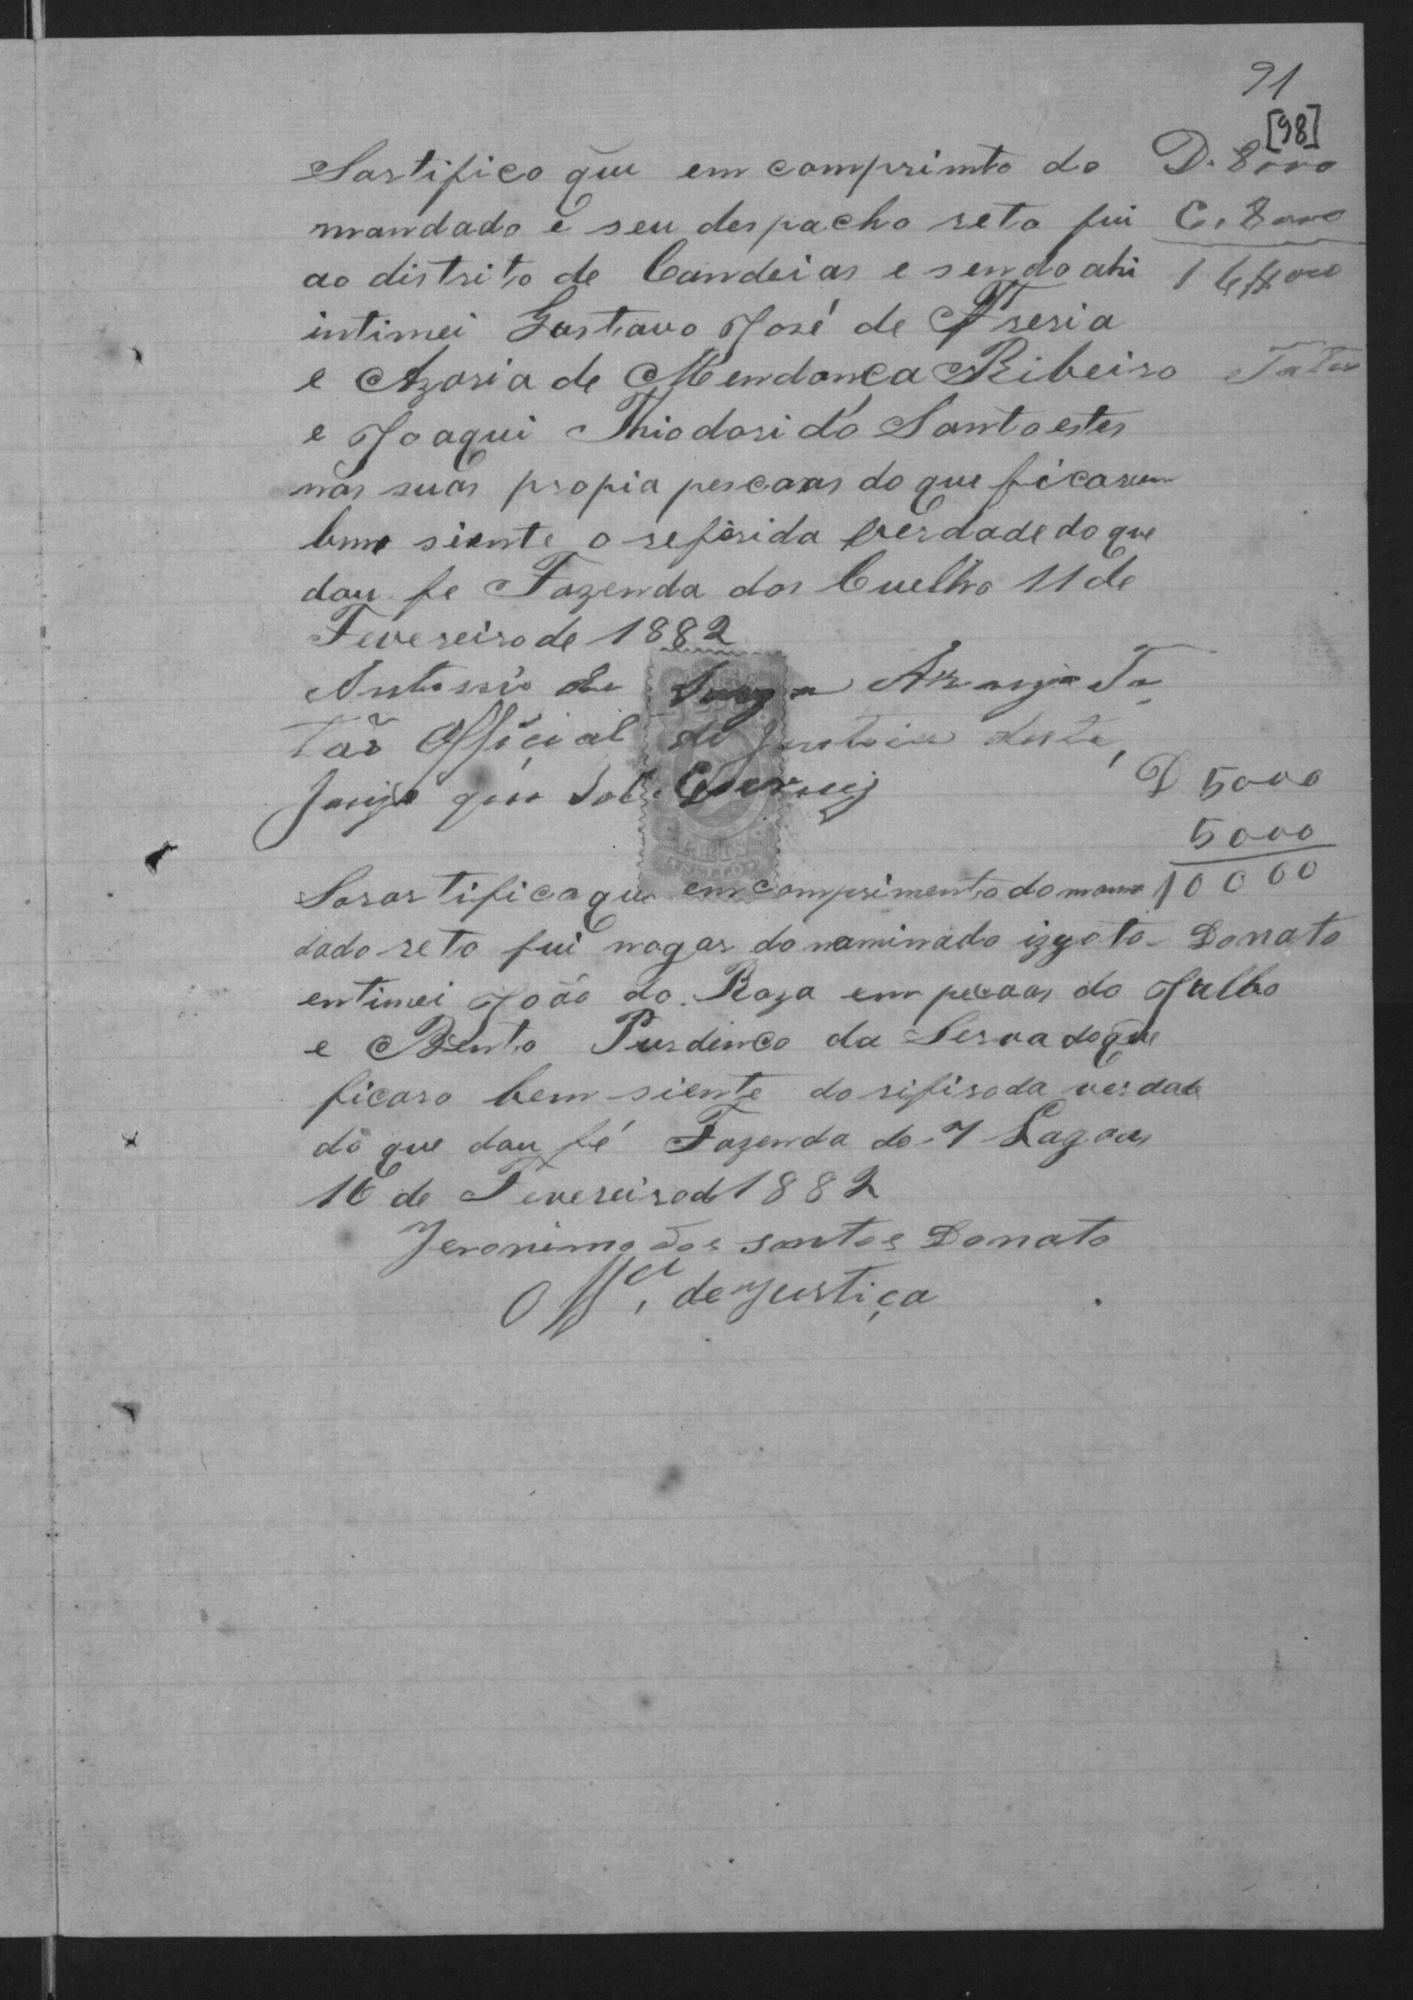 91
[98]
Sartifico que em comprimto do D. 8000
mandado e seu despacho reto fui C. 8000
ao distrito de Candeias e sendo ahi 16#000
intimei Gustavo José de Freria
e Azaria de Mendonca Ribeiro Tatao
e Joaqui Thiodori do Santo estes
nas suas propia pescoas do que ficarem
bem siente o referida verdade do que
dou fe Fazenda dos Cuelho 11 de
Fevereiro de 1882
Antonio de Souza Araujo Ta
tão Official de Justicia deste
Juizo que sob Escrevij D 5000
5000
Sosartifica que em comprimento do man 10000
dado reto fui nogar do naminado izgoto Donato
entimei João do Roza em pecoas do Julbo
e Bento Purdenco da Serva do que
ficaro bem siente do rifiroda verdade
do que dou fé Fazenda de 7 Lagoas
16 de Fevereiro d 1882
Jeronimo dos santos Donato
Offal. de Justiça